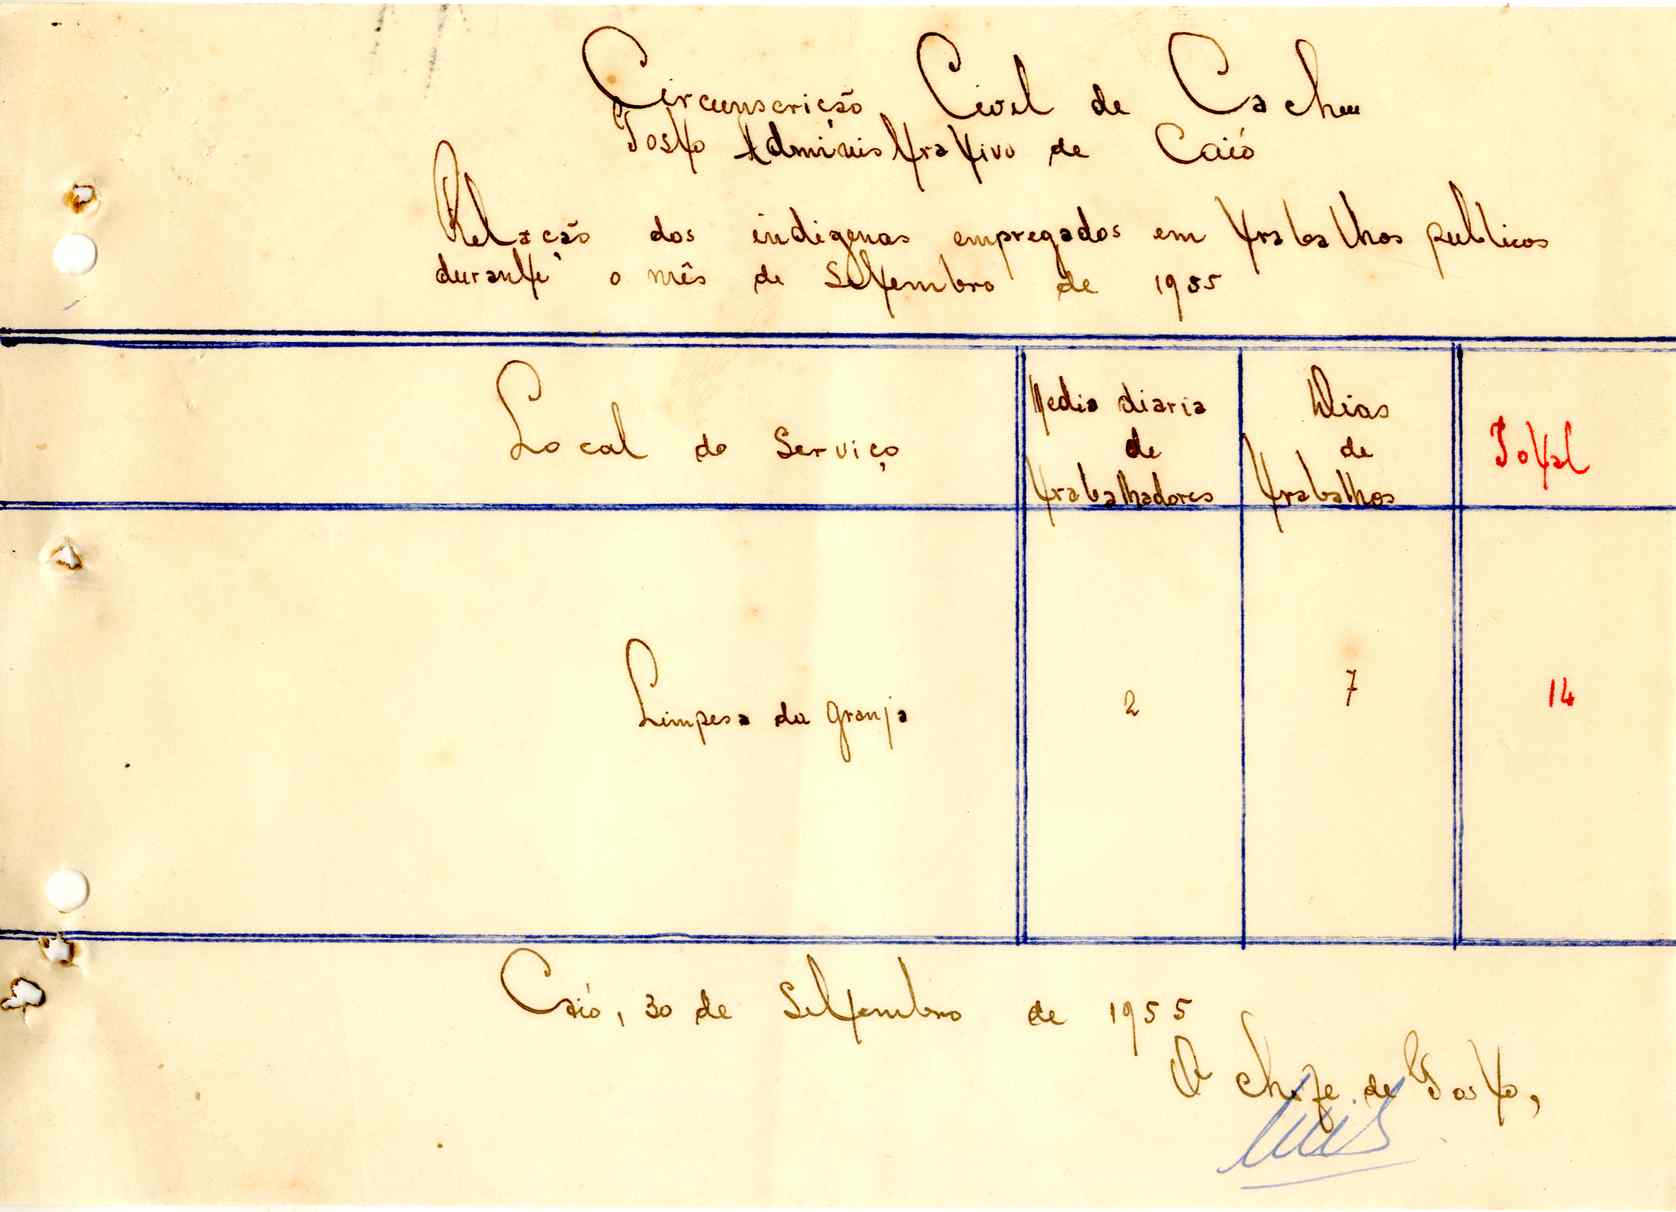 Circunscrição Civil de Cacheu
Posto Administrativo de Caió
Relação dos indigenas empregados em trabalhos publicos
durante o mês de Setembro de 1955
Local do Serviço
Media diaria
de
trabalhadores
Dias
de
trabalhos
Total
Limpesa da granja
2
7
14
Caió, 30 de Setembro de 1955
O chefe de Posto,